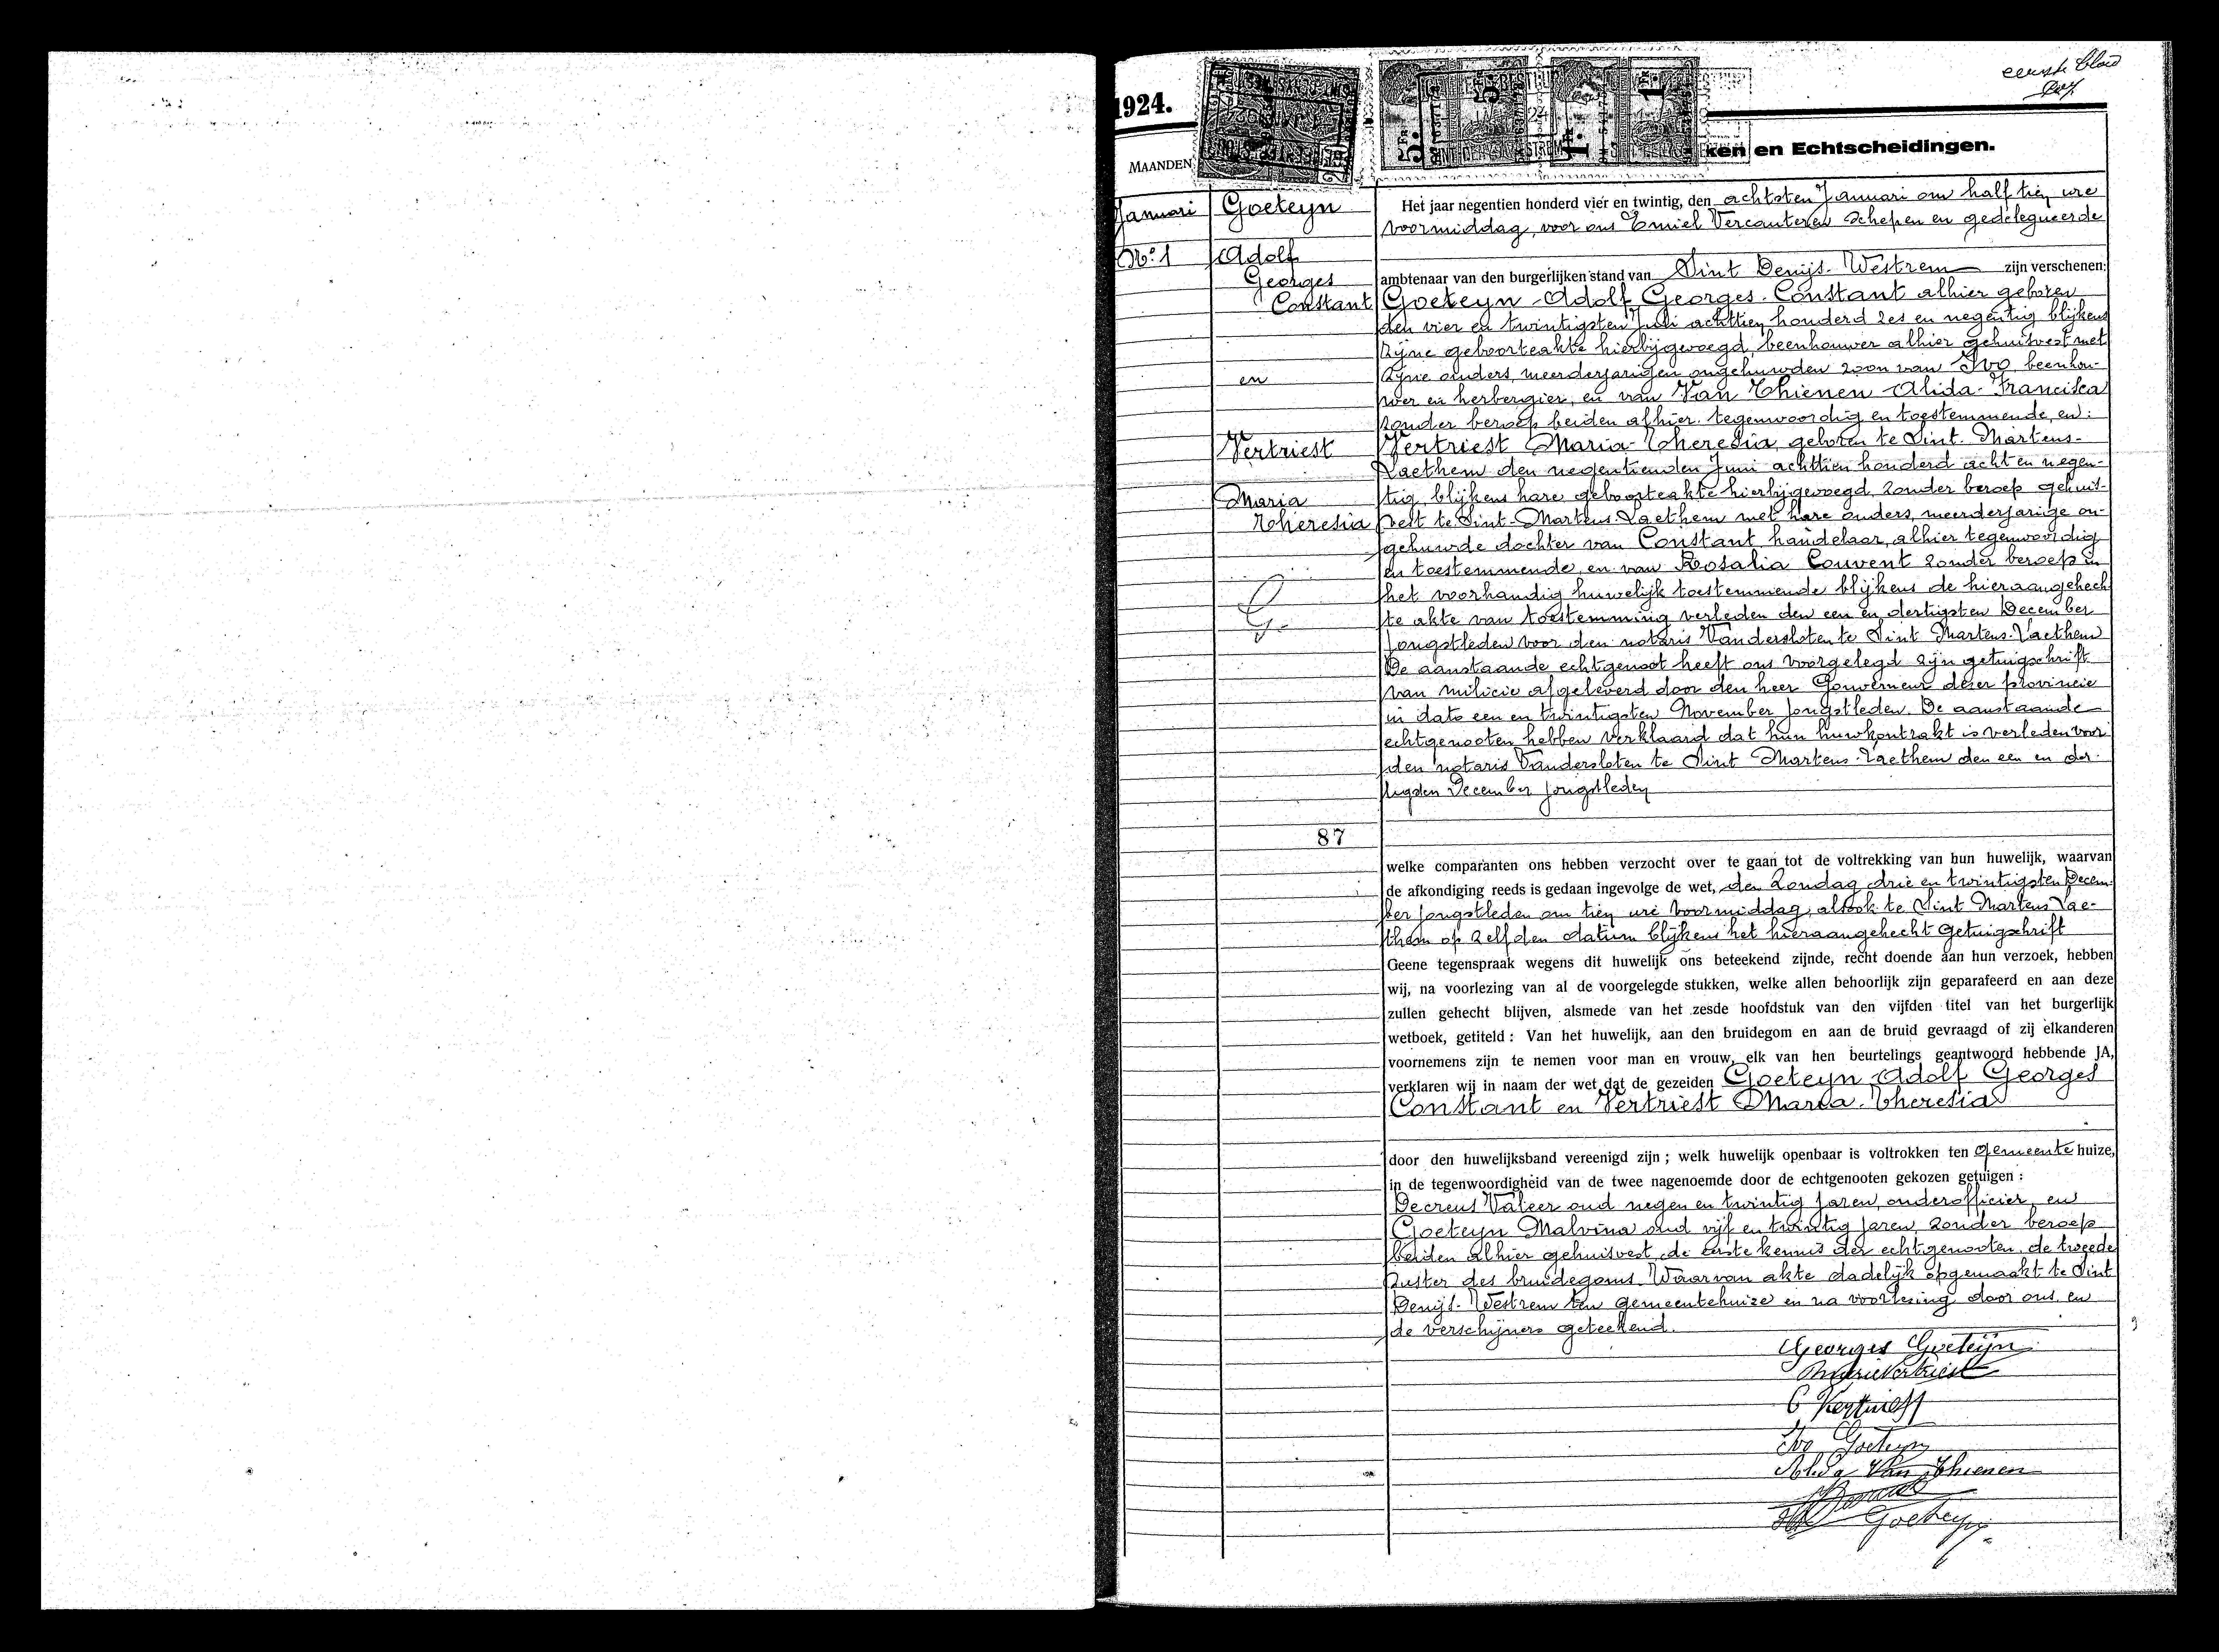 eerste blad
1924.
MAANDEN
ken en Echtscheidingen.
Januari
Nº 1
Goeteyn
Adolf
Georges
Constant
en
Vertriest
Maria
Theresia
87
Het jaar negentien honderd vier en twintig, den achtsten Januari om half tien ure
voormiddag, voor ons Emiel Vercauteren schepen en gedelegueerde
ambtenaar van den burgerlijken stand van Sint Denijs-Westrem zijn verschenen:
Goeteyn Adolf Georges Constant alhier geboren
den vier en twintigsten Juli achttien honderd zes en negentig blijkens
zijne geboorteakte hierbijgevoegd, beenhouwer alhier gehuisvest met
zijne ouders, meerderjarigen ongehuwden zoon van Ivo beenhou-
wer en herbergier, en van Van Thienen Alida-Francisca
zonder beroep beiden alhier tegenwoordig en toestemmende, en:
Vertriest Maria-Theresia, geboren te Sint-Martens-
Laethem den negentienden Juni achttien honderd acht en negen-
tig, blijkens hare geboorteakte hierbijgevoegd, zonder beroep gehuis-
vest te Sint-Martens-Laethem met hare ouders, meerderjarige on-
gehuwde dochter van Constant, handelaar, alhier tegenwoordig
en toestemmende, en van Rosalia Couvent zonder beroep in
het voorhandig huwelijk toestemmende blijkens de hieraangehech-
te akte van toestemming verleden den een en dertigsten December
jongstleden voor den notaris Vandersloten te Sint Martens-Laethem
De aanstaande echtgenoot heeft ons voorgelegd zijn getuigschrift
van milicie afgeleverd door den heer Gouverneur dezer provincie
in dato een en twintigsten November jongstleden. De aanstaande
echtgenooten hebben verklaard dat hun huwkontrakt is verleden voor
den notaris Vandersloten te Sint Martens-Laethem den een en der-
tigsten December jongstleden
welke comparanten ons hebben verzocht over te gaan tot de voltrekking van hun huwelijk, waarvan
de afkondiging reeds is gedaan ingevolge de wet, den Zondag drie en twintigsten Decem-
ber jongstleden om tien ure voormiddag, alsook te Sint Martens Lae-
them op zelfden datum blijkens het hieraangehecht getuigschrift
Geene tegenspraak wegens dit huwelijk ons beteekend zijnde, recht doende aan hun verzoek, hebben
wij, na voorlezing van al de voorgelegde stukken, welke allen behoorlijk zijn geparafeerd en aan deze
zullen gehecht blijven, alsmede van het zesde hoofdstuk van den vijfden titel van het burgerlijk
wetboek, getiteld : Van het huwelijk, aan den bruidegom en aan de bruid gevraagd of zij elkanderen
voornemens zijn te nemen voor man en vrouw, elk van hen beurtelings geantwoord hebbende JA,
verklaren wij in naam der wet dat de gezeiden Goeteyn Adolf Georges
Constant en Vertriest Maria-Theresia
door den huwelijksband vereenigd zijn ; welk huwelijk openbaar is voltrokken ten gemeente huize,
in de tegenwoordigheid van de twee nagenoemde door de echtgenooten gekozen getuigen :
Decreus Valeer oud negen en twintig jaren, onderofficier, en
Goeteyn Malvina oud vijf en twintig jaren, zonder beroep
beiden alhier gehuisvest, de eerste kennis der echtgenooten, de tweede
zuster des bruidegoms. Waarvan akte dadelijk opgemaakt te Sint
Denijs-Westrem ten gemeentehuize en na voorlezing door ons en
de verschijners geteekend.
Georges Goeteyn
Marie Vertriest
C Vertriest
Ivo Goeteyn
Alida Van Thienen
Goeteyn